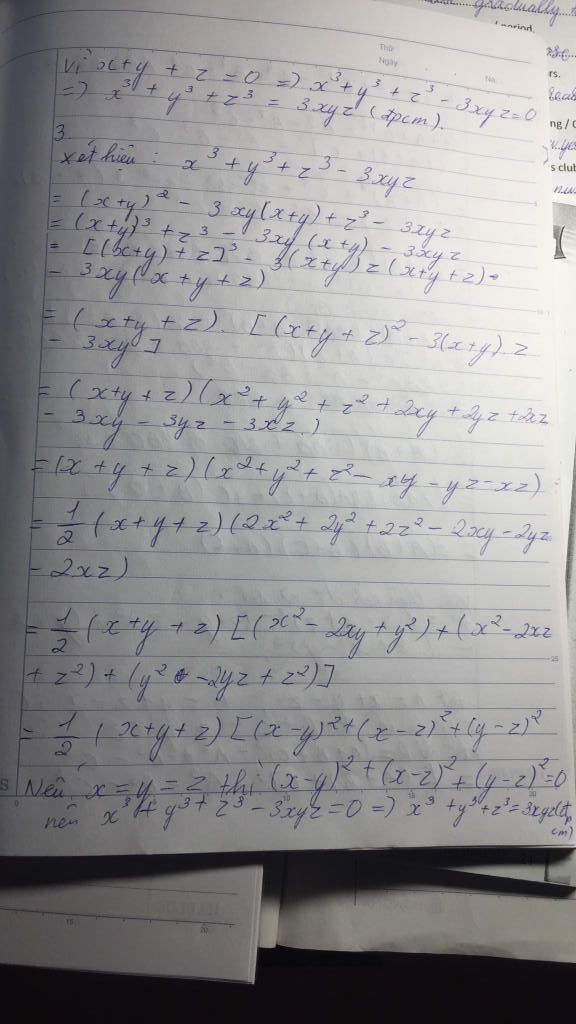 gradually
period.
Thứ
Ngày
No.
Vì x + y + z = 0 => x³ + y³ + z³ - 3xyz = 0
=> x³ + y³ + z³ = 3xyz (đpcm).
3.
xét hiệu : x³ + y³ + z³ - 3xyz
= (x+y)² - 3xy(x+y) + z³ - 3xyz
= (x+y)³ + z³ - 3xy(x+y) - 3xyz
= [(x+y) + z]³ - 3(x+y)z(x+y+z)
- 3xy(x + y + z)
= (x+y+z). [(x+y+z)² - 3(x+y).z
- 3xy]
= (x+y+z)(x² + y² + z² + 2xy + 2yz + 2xz
- 3xy - 3yz - 3xz.)
= (x + y + z)(x² + y² + z² - xy - yz - xz)
= 1/2 (x + y + z)(2x² + 2y² + 2z² - 2xy - 2yz
- 2xz)
= 1/2 (x+y + z)[(x² - 2xy + y²) + (x² - 2xz
+ z²) + (y² - 2yz + z²)]
= 1/2 (x+y+z)[(x-y)² + (x-z)² + (y-z)²
Nếu x = y = z thì (x-y)² + (x-z)² + (y-z)² = 0
nên x³ + y³ + z³ - 3xyz = 0 => x³ + y³ + z³ = 3xyz (đp
cm)
15
20